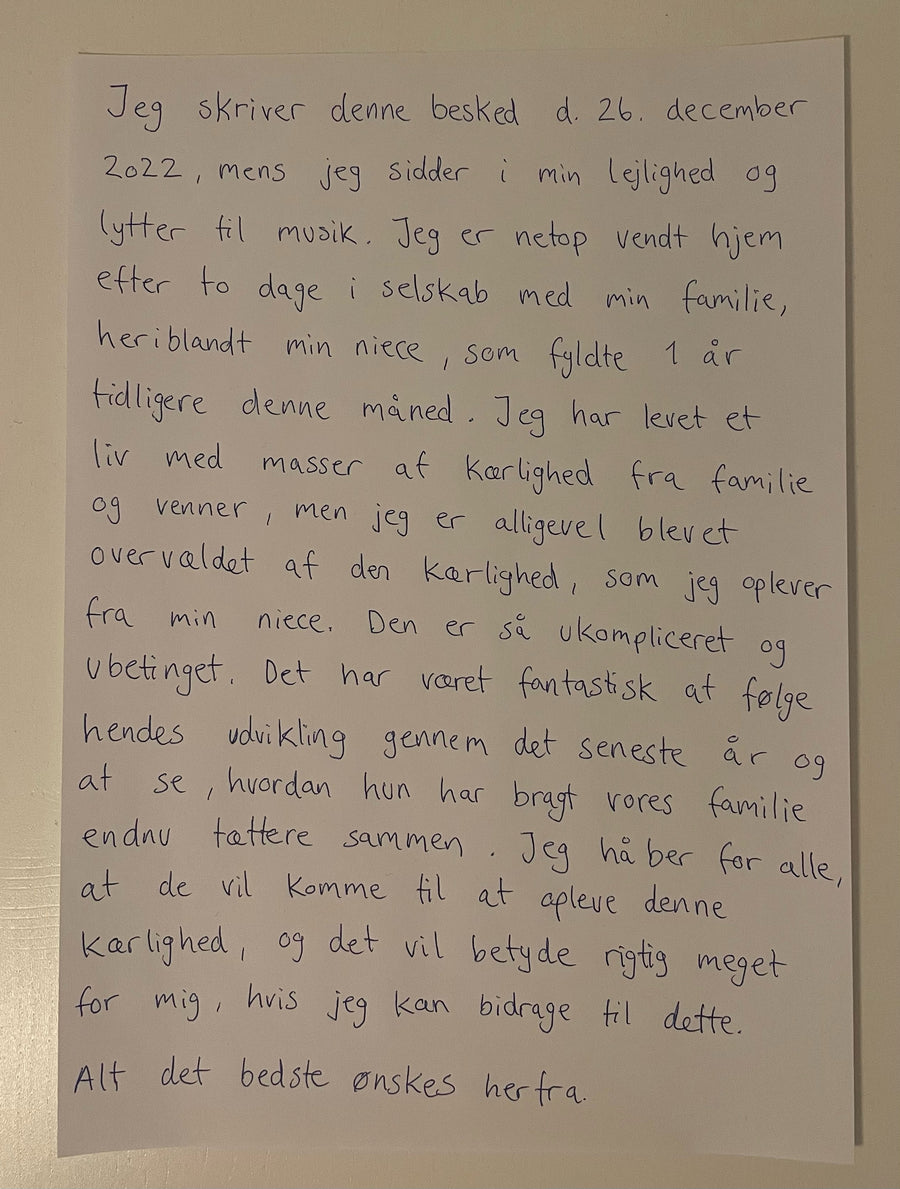 Jeg skriver denne besked d. 26. december
2022, mens jeg sidder i min lejlighed og
lytter til musik. Jeg er netop vendt hjem
efter to dage i selskab med min familie,
heriblandt min niece, som fyldte 1 år
tidligere denne måned. Jeg har levet et
liv med masser af kærlighed fra familie
og venner, men jeg er alligevel blevet
overvældet af den kærlighed, som jeg oplever
fra min niece. Den er så ukompliceret og
ubetinget. Det har været fantastisk at følge
hendes udvikling gennem det seneste år og
at se, hvordan hun har bragt vores familie
endnu tættere sammen. Jeg håber for alle,
at de vil komme til at opleve denne
kærlighed, og det vil betyde rigtig meget
for mig, hvis jeg kan bidrage til dette.
Alt det bedste ønskes herfra.